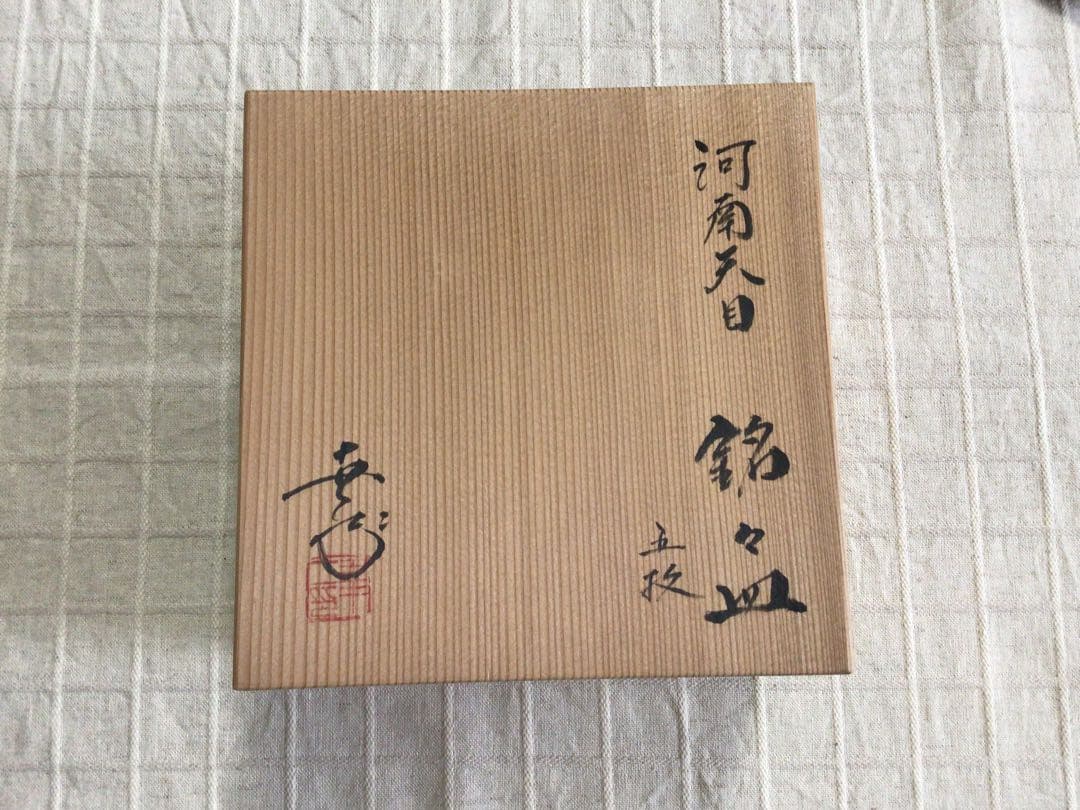 河南天目 銘々皿
五枚